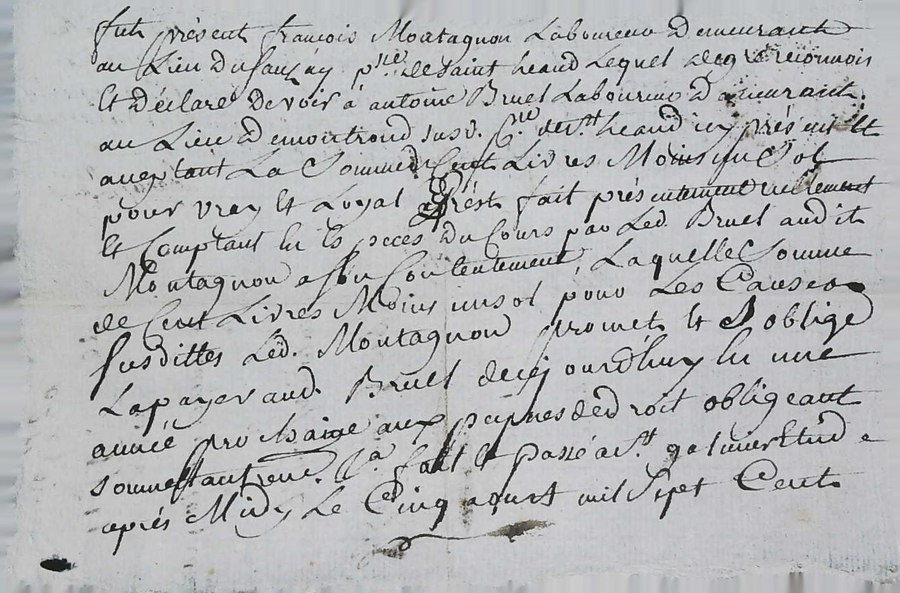 fut présent françois Montagnon Laboureur Demeurant
au Lieu Du sauzéa p.sse De saint heand Lequel degré reconnois
Et Déclare Devoir á antoine Bruel Laboureur Demeurant
au Lieu De montrond susd. de st. heand icy présent Et
aceptant La Somme de Cent Livres Moins un Sol
pour vray Et Loyal prést fait présentement réellement
Et Comptant En Es peces Du Cours par Led. Bruel audit
Montagnon a son Contentement, Laquelle Somme
de Cent Livres Moins un sol pour Les Causes
susdittes Led. Montagnon promet Et S oblige
La payer aud. Bruel decej jourd'huy En une
année prochaine aux peines de Droit obligeant
fait Et passé a st. galmier Etude
aprés Midy Le Cinq aoust mil Sept Cent